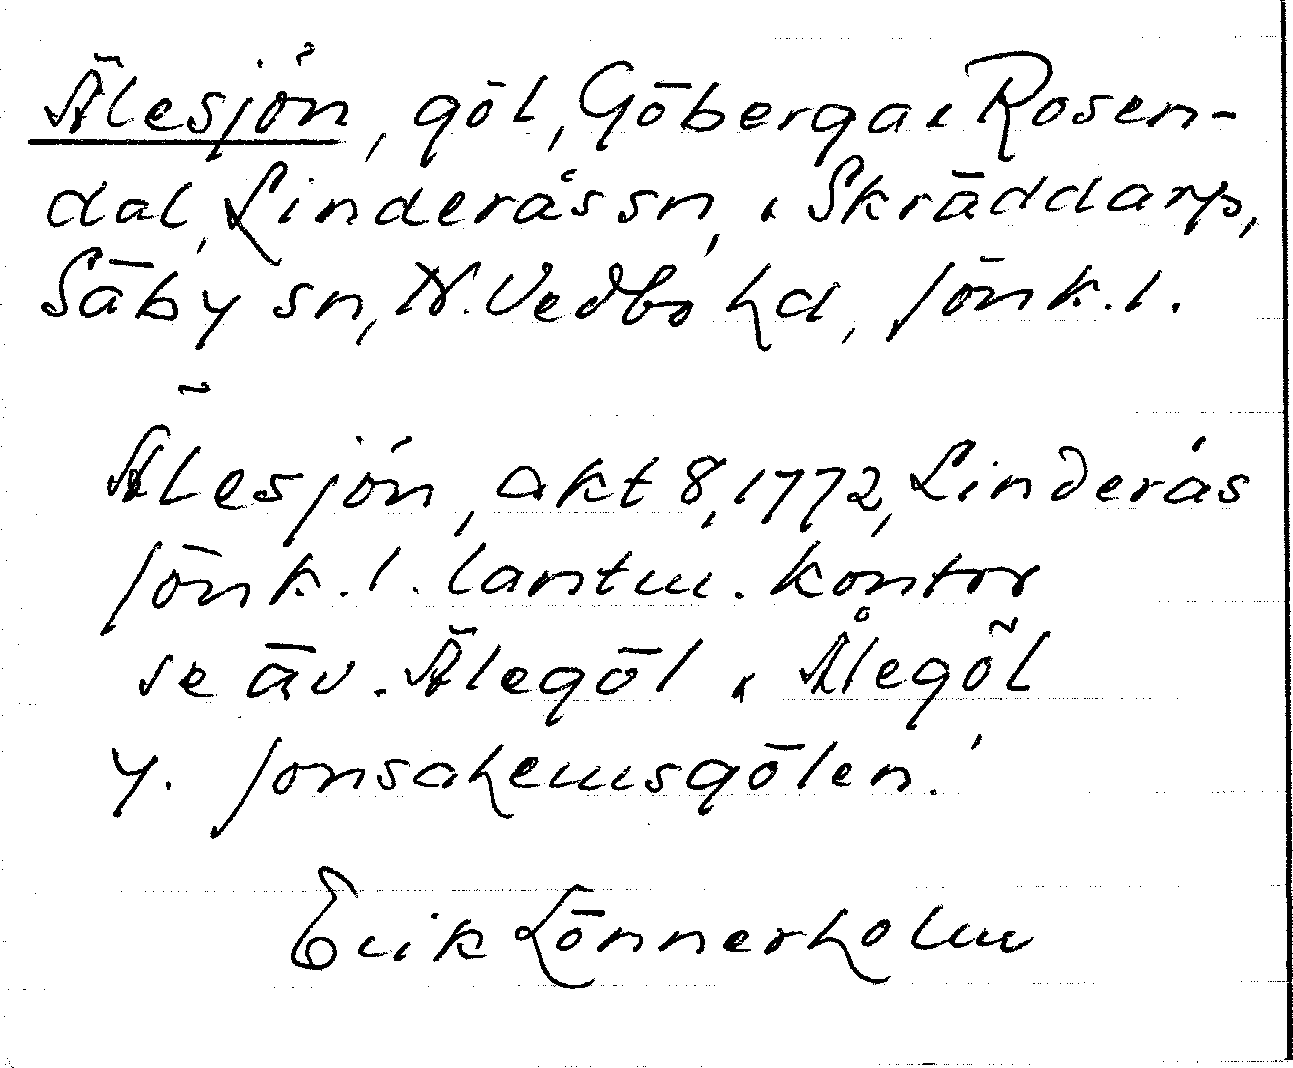 Älesjön, göl, Göberga, Rosen-
dal, Linderås sn, Skräddarp,
Säby sn, N. Vedbo hd, Jönk. l.
Älesjön, akt 8, 1772, Linderås
Jönk. l. lantm. kontor
se äv. Älegöl, Ålegöl
y. Jonsahemsgölen.
Erik Lönnerholm